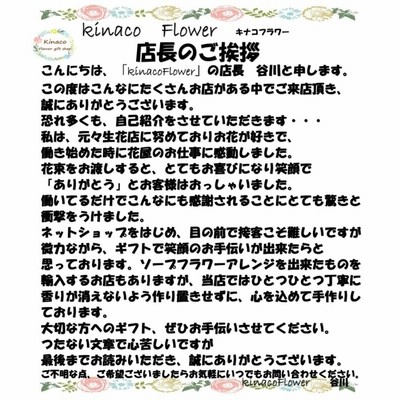 Kinaco
flower gift shop
kinaco Flower キナコフラワー
店長のご挨拶
こんにちは、「kinacoFlower」の店長 谷川と申します。
この度はこんなにたくさんお店がある中でご来店頂き、
誠にありがとうございます。
恐れ多くも、自己紹介をさせていただきます・・・
私は、元々生花店に努めておりお花が好きで、
働き始めた時に花屋のお仕事に感動しました。
花束をお渡しすると、とてもお喜びになり笑顔で
「ありがとう」とお客様はおっしゃいました。
働いてるだけでこんなにも感謝されることにとても驚きと
衝撃をうけました。
ネットショップをはじめ、目の前で接客こそ難しいですが
微力ながら、ギフトで笑顔のお手伝いが出来たらと
思っております。ソープフラワーアレンジを出来たものを
輸入するお店もありますが、当店ではひとつひとつ丁寧に
香りが消えないよう作り置きせずに、心を込めて手作りし
ております。
大切な方へのギフト、ぜひお手伝いさせてください。
つたない文章で心苦しいですが
最後までお読みいただき、誠にありがとうございます。
ご不明な点、ご希望ございましたらお気軽にいつでもお問い合わせください。
kinacoFlower 谷川